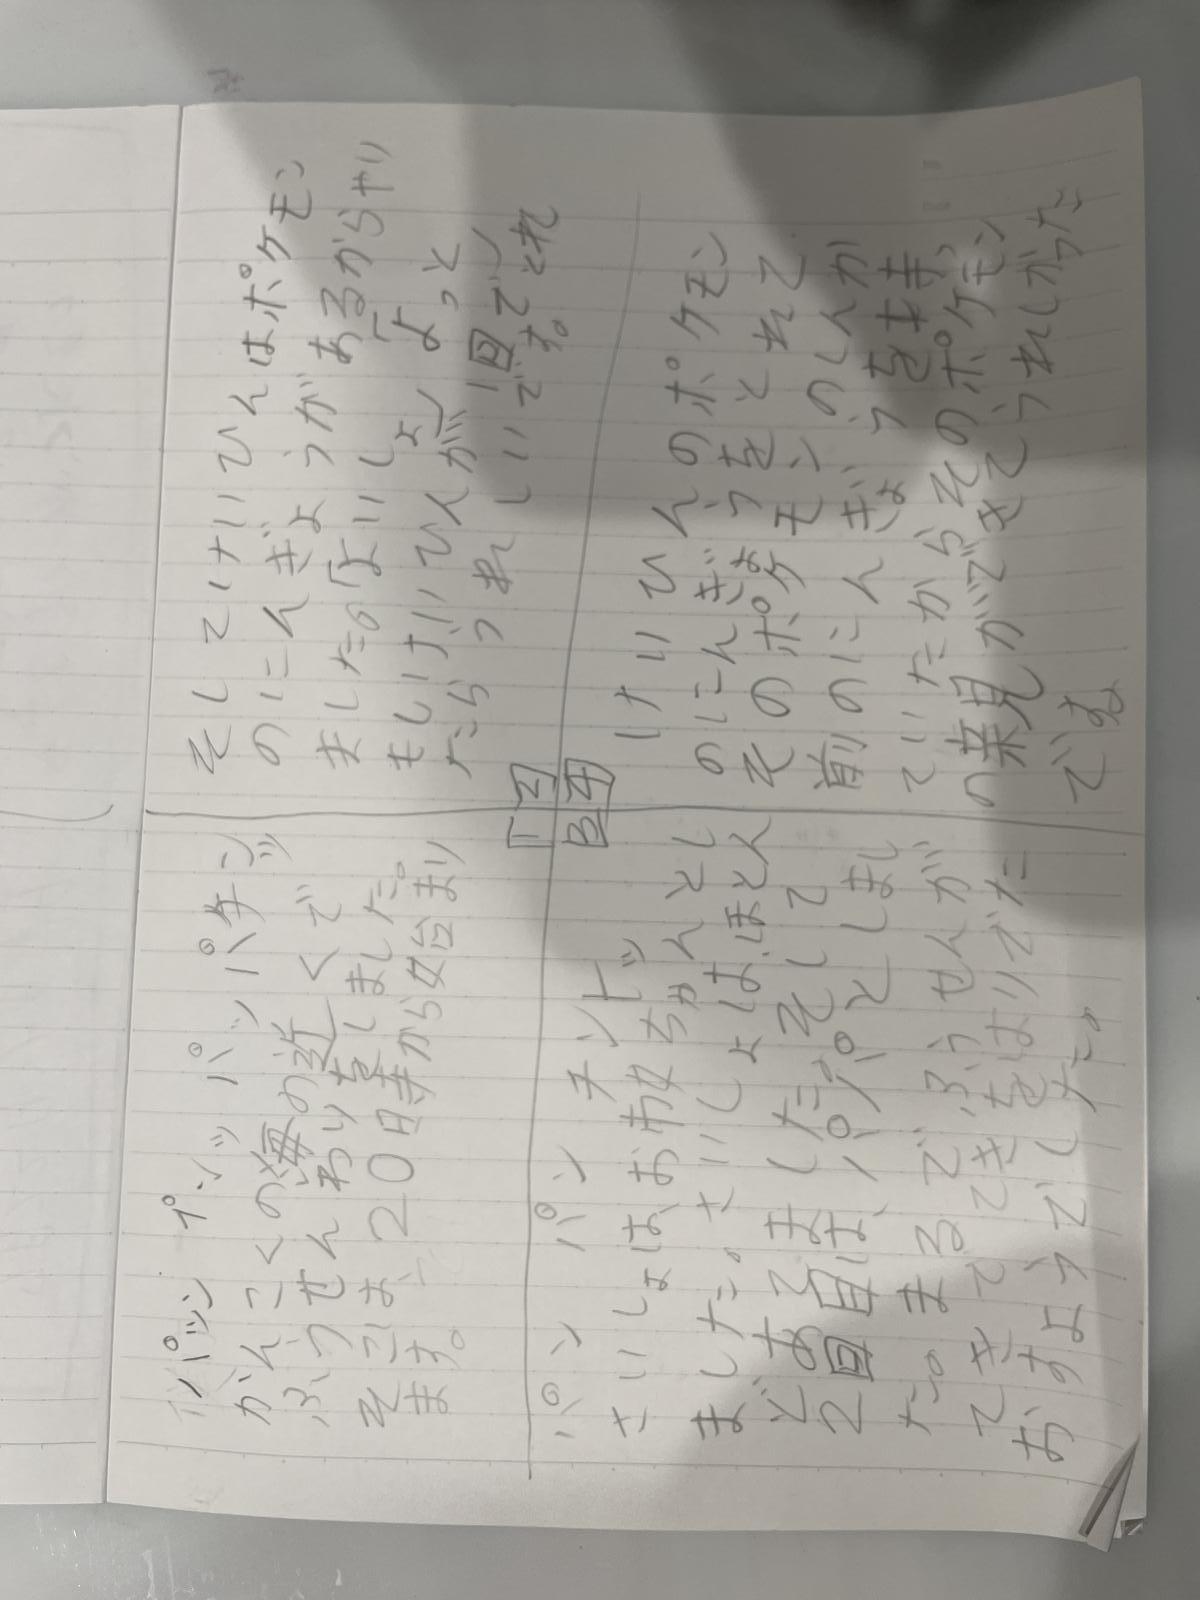 パパッン プンッ パッ パケンッ
かんこくの海の近くで
ふうせんわりをしました。
そこは、20時から始まり
ます。
1
そしてけいひんはポケモン
のにんぎょうがあるからやり
ました。「よいしょ」「よっと」
もしけいひんが1回でと
たらうれしいですね。
2
パン パン ナンドッ
さいしょは、お女ちゃんとし
ました。さいしょはほとん
どあてました。そして
2回目は、パパとしまし
た。まるでふうせんが
てきできをはりでた
おすようでした。
3
けいひんのポケモン
のにんぎょうをとれて
そのポケモンのしんか
前のにんぎょうをま
ていたからそのポケモン
の発見ができてうれしかった
です
4